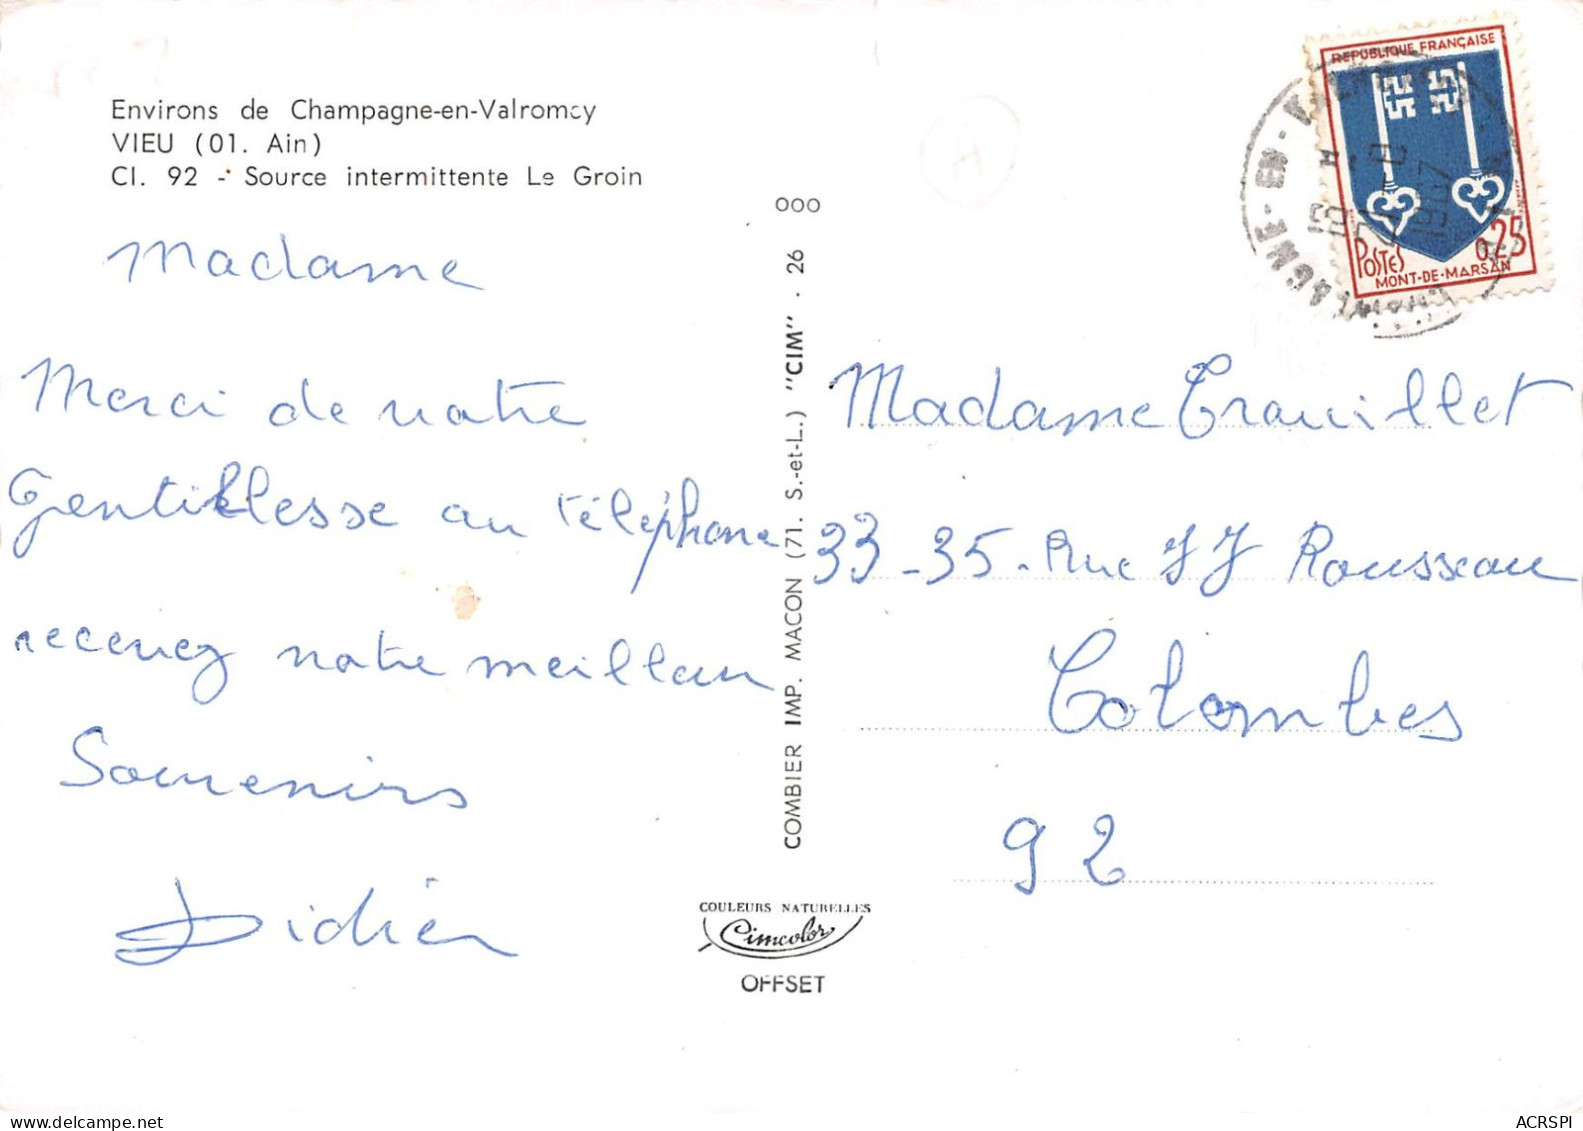 Environs de Champagne-en-Valromey
VIEU (01. Ain)
Cl. 92 - Source intermittente Le Groin
Madame
Merci de votre
Gentillesse au téléphone
recevez notre meilleur
Souvenirs
Didier
000
COMBIER IMP. MACON (71. S.-et-L.) "CIM" . 26
COULEURS NATURELLES
Cimcolor
OFFSET
REPUBLIQUE FRANÇAISE
POSTES 0,25
MONT-DE-MARSAN
CHAMPAGNE-EN-VALROMEY
1967
Madame Trouillet
33-35. Rue JJ Rousseau
Colombes
92
ACRSPI